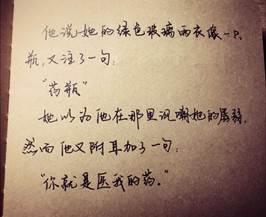 他说她的绿色玻璃雨衣像一只
瓶，又注了一句：
“药瓶”
她以为他在那里讽嘲她的孱弱，
然而他又附耳加了一句：
“你就是医我的药。”